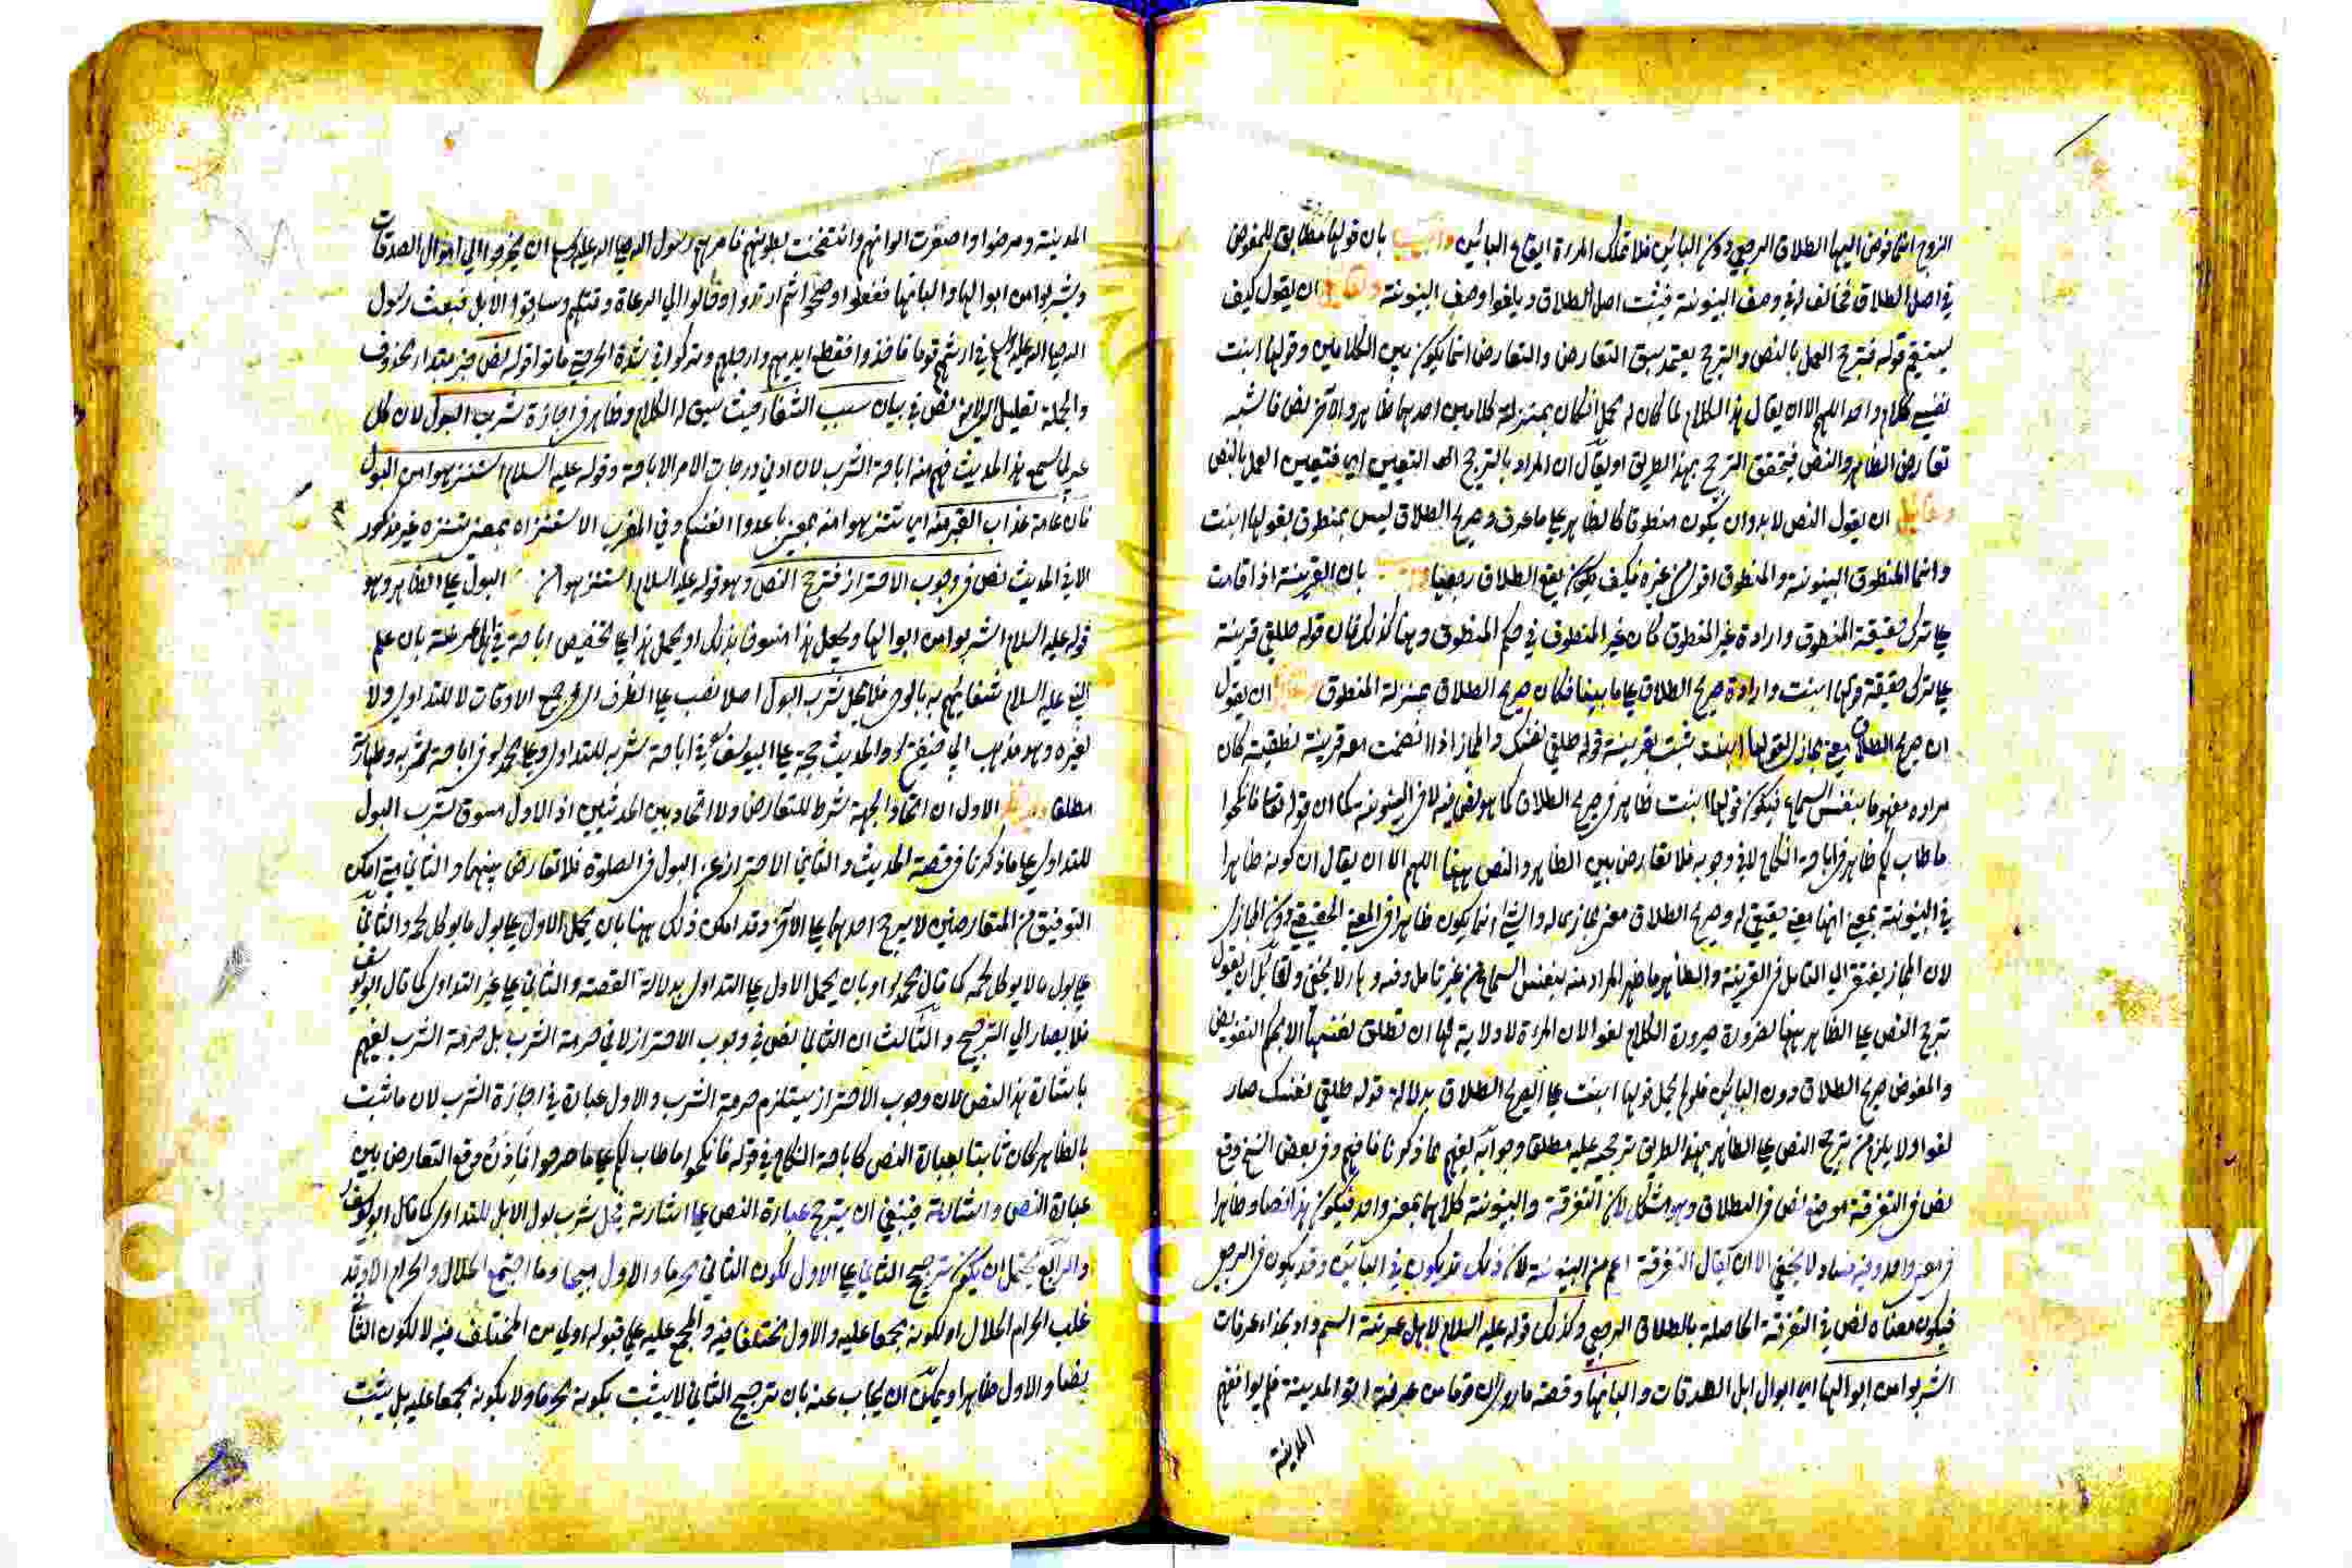 الزوج انما فوض اليها الطلاق الرجعي دون البائن فلا تملك المراة ايقاع البائن واجيب بان قولها مطابق للمفوض
في اصل الطلاق مخالف له في وصف البينونة فيثبت اصل الطلاق ويلغوا وصف البينونة ولقائل ان يقول كيف
يستقيم قوله فترجح العمل بالنص والترجح يعتمد سبق التعارض والتعارض انما يكون بين الكلامين وقولها ابنت
نفسي كلام واحد اللهم الا ان يقال هذا الكلام لما كان له محملان كان بمنزلة كلامين احدهما ظاهر والآخر نص فاشبه
تعارض الظاهر والنص فيتحقق الترجح بهذا الطريق او يقال ان المراد بالترجح التعيين اي فتعين العمل بالنص
ولقائل ان يقول النص لا بد وان يكون منطوقا كالظاهر على ما عرف وصريح الطلاق ليس بمنطوق بقولها ابنت
وانما المنطوق البينونة والمنطوق اقوى من غيره فكيف يقع الطلاق رجعيا بان القرينة اذا قامت
على ترك حقيقة المنطوق وارادة غير المنطوق كان غير المنطوق في حكم المنطوق وهنا كذلك فان قوله طلقي قرينة
على ترك حقيقة قولها ابنت وارادة صريح الطلاق على ما بينا فكان صريح الطلاق بمنزلة المنطوق ان يقول
ان صريح الطلاق معنى مجازي لقولها ابنت ثبت بقرينة قوله طلقي نفسك والمجاز اذا انضمت معه قرينة لفظية كان
مراده مفهوما بنفس السماع فيكون قولها ابنت ظاهر في صريح الطلاق كما هو نص فيه لا في البينونة كما ان قوله تعالى فانكحوا
ما طاب لكم ظاهر في اباحة النكاح لا في وجوبه فلا تعارض بين الظاهر والنص ههنا اللهم الا ان يقال ان كونه ظاهرا
في البينونة بمعنى انها معنى حقيقي له وصريح الطلاق معنى مجازي له والشئ انما يكون ظاهرا في المعنى الحقيقي دون المجازي
لان المجاز يفتقر الى التامل في القرينة والظاهر ما ظهر المراد منه بنفس السماع من غير تامل وفيه ما لا يخفى ولقائل ان يقول
ترجح النص على الظاهر ههنا لضرورة صيرورة الكلام لغوا لان المراة لا ولاية لها ان تطلق نفسها الا بحكم التفويض
والمفوض صريح الطلاق دون البائن فلو لم يحمل قولها ابنت على صريح الطلاق بدلالة قوله طلقي نفسك صار
لغوا ولا يلزم من ترجح النص على الظاهر بهذا الطريق ترجحه عليه مطلقا وجوابه يفهم مما ذكرنا فافهم وفي بعض النسخ وقع
نص في التفرقة موضع نص في الطلاق وهو مشكل لان التفرقة والبينونة كلاهما بمعنى واحد فيكون هذا نصا وظاهرا
في معنى واحد وفيه فساد لا يخفى الا ان يقال التفرقة اعم من البينونة لان ذلك قد يكون في البائن وقد يكون في الرجعي
فيكون معناه نص في التفرقة الحاصلة بالطلاق الرجعي وكذلك قوله عليه السلام لاهل عرينة اسم واد بحذاء عرفات
اشربوا من ابوالها اي ابوال ابل الصدقات والبانها وقصة ما روي ان قوما من عرينة اتوا المدينة فلم يوافقهم
المدينة
المدينة ومرضوا واصفرت الوانهم وانتفخت بطونهم فامرهم رسول الله صلى الله عليه وسلم ان يخرجوا الى ابوال الصدقات
ويشربوا من ابوالها والبانها ففعلوا وصحوا ثم ارتدوا ومالوا الى الرعاة وقتلوهم وساقوا الابل فبعث رسول
الله صلى الله عليه وسلم في اثرهم قوما فاخذوا فقطع ايديهم وارجلهم وتركوا في شدة الحر حتى ماتوا قوله نص خبر مبتداء محذوف
والجملة تعليل اي لانه نص في بيان سبب الشفاء حيث سيق له الكلام وظاهر في اجازة شرب البول لان كل
عربي سمع هذا الحديث فهم منه اباحة الشرب لان ادنى درجات الامر الاباحة وقوله عليه السلام استنزهوا من البول
فان عامة عذاب القبر منه اي تنزهوا منه بمعنى باعدوا انفسكم وفي المغرب الاستنزاه بمعنى تنزه غير مذكور
الا في الحديث نص في وجوب الاحتراز فترجح النص وهو قوله عليه السلام استنزهوا من البول على الظاهر وهو
قوله عليه السلام اشربوا من ابوالها ويجعل هذا منسوخا بذلك او يحمل هذا على تخصيص اباحة في اهل عرينة بان علم
النبي عليه السلام شفائهم به بالوحي فلا يحل شرب البول اصلا نصب على الظرف اي في جميع الاوقات لا للتداوي ولا
لغيره وهو مذهب ابي حنيفة والحديث حجة على ابي يوسف في اباحة شربه للتداوي وعلى محمد في اباحة شربه وطهارة
مطلقا الاول ان اتحاد الجهة شرط للتعارض ولا اتحاد بين الحديثين اذ الاول مسوق لشرب البول
للتداوي على ما ذكرنا في قصة الحديث والثاني الاحتراز عن البول في الصلوة فلا تعارض بينهما والثاني متى امكن
التوفيق من المتعارضين لا يرجح احدهما على الآخر وقد امكن ذلك ههنا بان يحمل الاول على بول ما يوكل لحمه والثاني
على بول ما لا يوكل لحمه كما قال محمد او بان يحمل الاول على التداوي بدلالة القصة والثاني على غير التداوي كما قال ابو يوسف
فلا يصار الى الترجيح والثالث ان الثاني نص في وجوب الاحتراز لا في حرمة الشرب بل حرمة الشرب يفهم
باشارة هذا النص لان وجوب الاحتراز يستلزم حرمة الشرب والاول عبارة في اجازة الشرب لان ما ثبت
بالظاهر كان ثابتا بعبارة النص كاباحة النكاح في قوله فانكحوا ما طاب لكم على ما صرحوا فاذن وقع التعارض بين
عبارة النص واشارته فينبغي ان يترجح عبارة النص على اشارته فيحل شرب بول الابل للتداوي كما قال ابو يوسف
والرابع يحتمل ان يكون ترجيح الثاني على الاول لكون الثاني محرما والاول مبيحا وما اجتمع الحلال والحرام الا وقد
غلب الحرام الحلال او لكونه مجمعا عليه والاول مختلفا فيه والمجمع عليه على قبوله اولى من المختلف فيه لا لكون الثاني
نصا والاول ظاهرا ويمكن ان يجاب عنه بان ترجيح الثاني لا يثبت بكونه محرما ولا بكونه مجمعا عليه بل يثبت